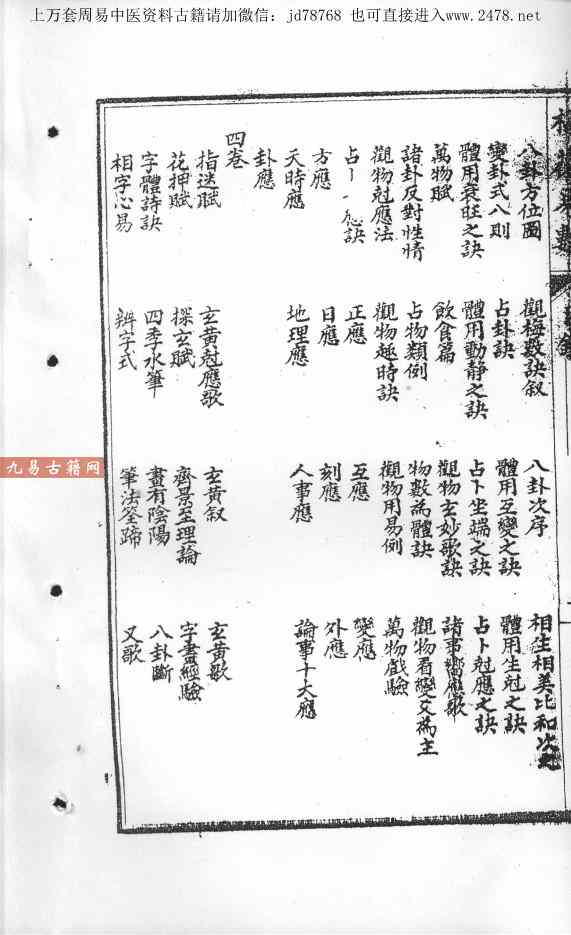 上万套周易中医资料古籍请加微信：jd78768 也可直接进入www.2478.net
八卦方位圖 觀梅數訣叙 八卦次序 相生相美比和次
變卦式八則 占卦訣 體用互變之訣 體用生尅之訣
體用衰旺之訣 體用動静之訣 占卜坐端之訣 占卜尅應之訣
萬物賦 飲食篇 觀物玄妙歌訣 諸事響應歌
諸卦反對性情 占物類例 物數為體訣 觀物看變爻為主
觀物尅應法 觀物趣時訣 觀物用易例 萬物戲驗
占卜 應訣 正應 互應 變應
方應 日應 刻應 外應
天時應 地理應 人事應 論事十大應
卦應
四卷
指迷賦 玄黄尅應歌 玄黄叙 玄黄歌
花押賦 探玄賦 齊景至理論 字畫經驗
字體詩訣 四季水筆 畫有陰陽 八卦斷
相字心易 辨字式 筆法筌蹄 又歌
九易古籍网